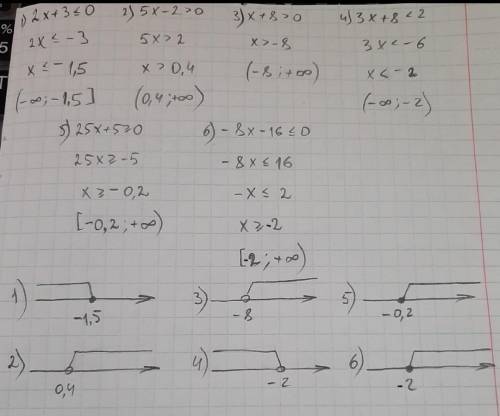 1) 2x+3≤0
2x≤-3
x≤-1,5
(-∞;-1,5]
2) 5x-2>0
5x>2
x>0,4
(0,4;+∞)
3) x+8>0
x>-8
(-8;+∞)
4) 3x+8<2
3x<-6
x<-2
(-∞;-2)
5) 25x+5≥0
25x≥-5
x≥-0,2
[-0,2;+∞)
6) -8x-16≤0
-8x≤16
-x≤2
x≥-2
[-2;+∞)
1) -1,5
3) -8
5) -0,2
2) 0,4
4) -2
6) -2